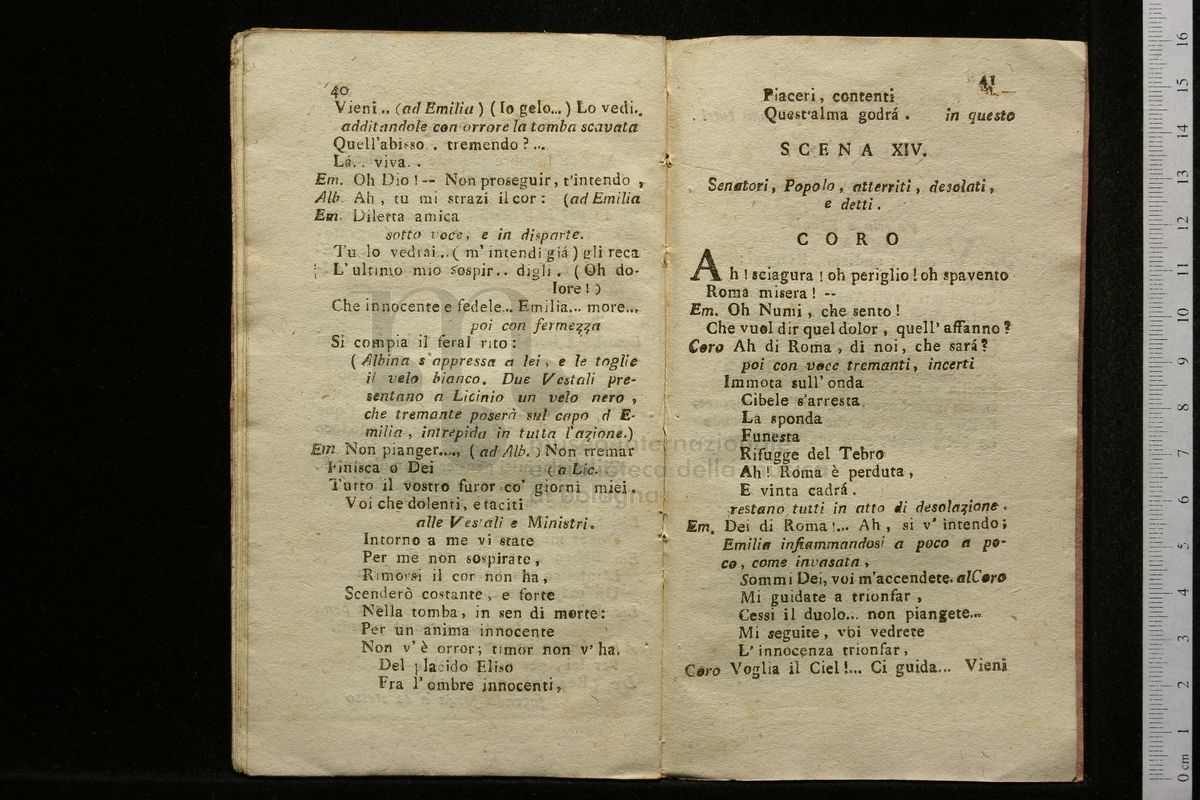 40
Vieni .. (ad Emilia) (Io gelo...) Lo vedi..
additandole con orrore la tomba scavata
Quell'abisso . tremendo ? ...
Lá . . viva . .
Em. Oh Dio ! -- Non proseguir, t'intendo ,
Alb. Ah , tu mi strazi il cor : (ad Emilia
Em. Diletta amica
sotto voce, e in disparte.
Tu lo vedrai .. ( m' intendi giá ) gli reca
L'ultimo mio sospir .. digli . ( Oh do-
lore ! )
Che innocente e fedele .. Emilia... more...
poi con fermezza
Si compia il feral rito :
( Albina s'appressa a lei, e le toglie
il velo bianco. Due Vestali pre-
sentano a Licinio un velo nero ,
che tremante poserà sul capo d E-
milia , intrepida in tutta l'azione.)
Em. Non pianger...., ( ad Alb. ) Non tremar
Finisca o Dei (a Lic.
Tutto il vostro furor co' giorni miei.
Voi che dolenti, e taciti
alle Vestali e Ministri.
Intorno a me vi state
Per me non sospirate,
Rimorsi il cor non ha,
Scenderò costante, e forte
Nella tomba, in sen di morte:
Per un anima innocente
Non v' è orror; timor non v' ha.
Del placido Eliso
Fra l' ombre innocenti,
41
Piaceri , contenti
Quest'alma godrá . in questo
SCENA XIV.
Senatori, Popolo, atterriti, desolati,
e detti.
CORO
Ah ! sciagura ! oh periglio ! oh spavento
Roma misera ! --
Em. Oh Numi , che sento !
Che vuol dir quel dolor , quell' affanno ?
Coro Ah di Roma , di noi, che sará ?
poi con voce tremanti, incerti
Immota sull' onda
Cibele s'arresta,
La sponda
Funesta
Rifugge del Tebro
Ah ! Roma è perduta ,
E vinta cadrá .
restano tutti in atto di desolazione .
Em. Dei di Roma !... Ah , si v' intendo ;
Emilia infiammandosi a poco a po-
co, come invasata ,
Sommi Dei, voi m'accendete. al Coro
Mi guidate a trionfar ,
Cessi il duolo... non piangete...
Mi seguite , voi vedrete
L' innocenza trionfar,
Coro Voglia il Ciel !... Ci guida... Vieni